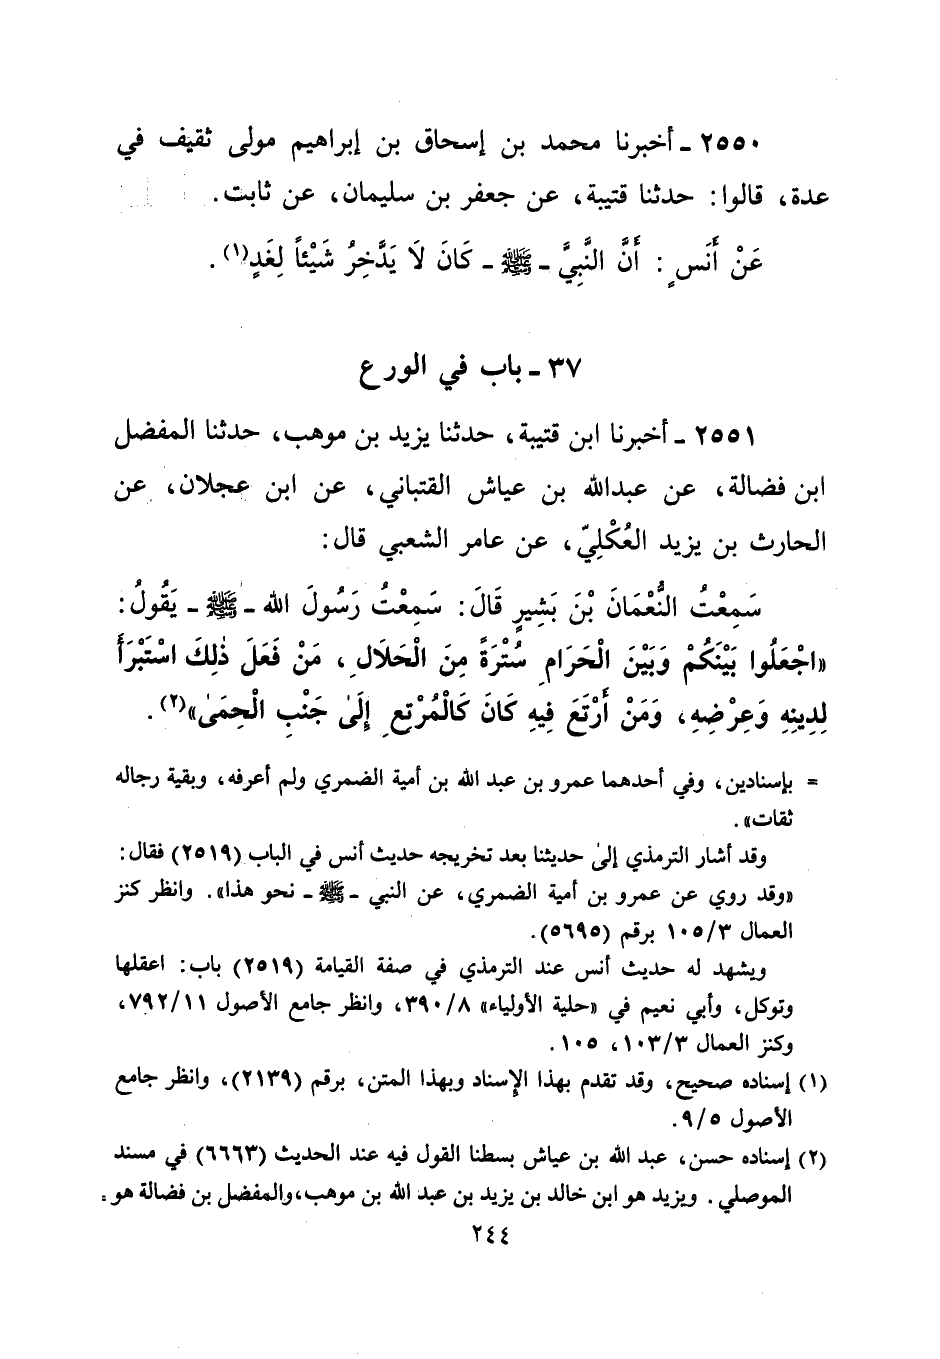 ٢٥٥٠ - أخبرنا محمد بن إسحاق بن إبراهيم مولى ثقيف في
عدة، قالوا: حدثنا قتيبة، عن جعفر بن سليمان، عن ثابت.
عَنْ أَنَسٍ: أَنَّ النَّبِيَّ - ﷺ - كَانَ لَا يَدَّخِرُ شَيْئاً لِغَدٍ(١).
٣٧ - باب في الورع
٢٥٥١ - أخبرنا ابن قتيبة، حدثنا يزيد بن موهب، حدثنا المفضل
ابن فضالة، عن عبدالله بن عياش القتباني، عن ابن عجلان، عن
الحارث بن يزيد العُكْلِيّ، عن عامر الشعبي قال:
سَمِعْتُ النُّعْمَانَ بْنَ بَشِيرٍ قَالَ: سَمِعْتُ رَسُولَ الله - ﷺ - يَقُولُ:
«اجْعَلُوا بَيْنَكُمْ وَبَيْنَ الْحَرَامِ سُتْرَةً مِنَ الْحَلَالِ، مَنْ فَعَلَ ذٰلِكَ اسْتَبْرَأَ
لِدِينِهِ وَعِرْضِهِ، وَمَنْ أَرْتَعَ فِيهِ كَانَ كَالْمُرْتِعِ إِلَىٰ جَنْبِ الْحِمَىٰ»(٢).
= بإسنادين، وفي أحدهما عمرو بن عبد الله بن أمية الضمري ولم أعرفه، وبقية رجاله
ثقات».
وقد أشار الترمذي إلىٰ حديثنا بعد تخريجه حديث أنس في الباب (٢٥١٩) فقال:
«وقد روي عن عمرو بن أمية الضمري، عن النبي - ﷺ - نحو هذا». وانظر كنز
العمال ١٠٥/٣ برقم (٥٦٩٥).
ويشهد له حديث أنس عند الترمذي في صفة القيامة (٢٥١٩) باب: اعقلها
وتوكل، وأبي نعيم في «حلية الأولياء» ٣٩٠/٨، وانظر جامع الأصول ٧٩٢/١١،
وكنز العمال ١٠٣/٣، ١٠٥.
(١) إسناده صحيح، وقد تقدم بهذا الإسناد وبهذا المتن، برقم (٢١٣٩)، وانظر جامع
الأصول ٩/٥.
(٢) إسناده حسن، عبد الله بن عياش بسطنا القول فيه عند الحديث (٦٦٦٣) في مسند
الموصلي. ويزيد هو ابن خالد بن يزيد بن عبد الله بن موهب، والمفضل بن فضالة هو =
٢٤٤